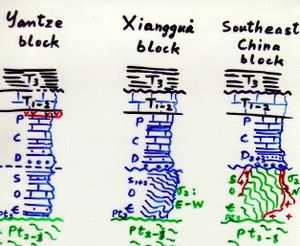 Yantze
block
T3
T1-2
P
C
D
S
O
Є
Pt3
Pt2-3
Xianggui
block
T3
T1-2
P
C
D
S1+2
O
Є
σ2:
E-W
Pt2-3
Southeast
China
block
T3
T1-2
P
C
D2
S
O
Є
Pt2-3